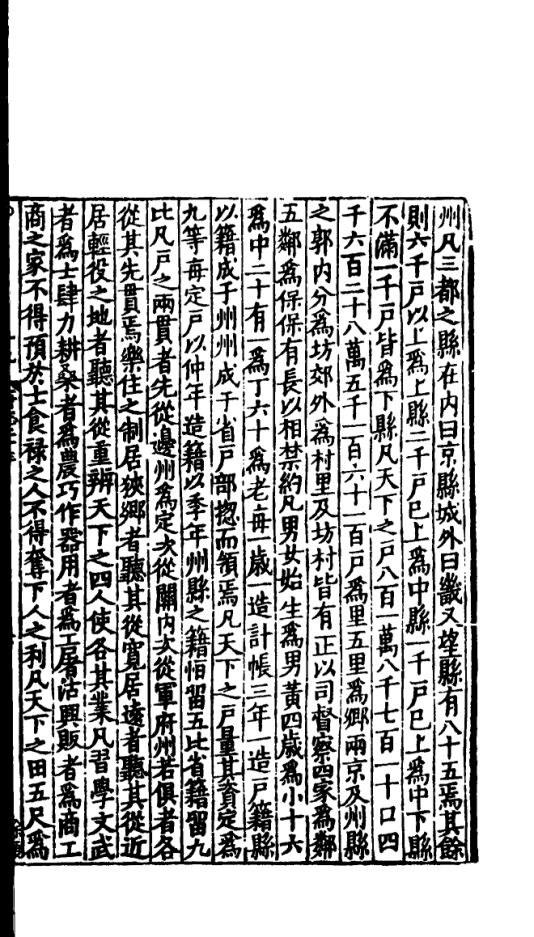 州凡三都之縣在内曰京縣城外曰畿又望縣有八十五焉其餘
則六千戸以上爲上縣二千戸已上爲中縣一千戸已上爲中下縣
不滿一千戸皆爲下縣凡天下之戸八百一萬八千七百一十口四
千六百二十八萬五千一百六十一百戸爲里五里爲鄉兩京及州縣
之郭内分爲坊郊外爲村里及坊村皆有正以司督察四家爲鄰
五鄰爲保保有長以相禁約凡男女始生爲男黃四歲爲小十六
爲中二十有一爲丁六十爲老每一歲一造計帳三年一造戸籍縣
以籍成于州州成于省戸部揔而領焉凡天下之戸量其資定爲
九等每定戸以仲年造籍以季年州縣之籍恒留五比省籍留九
比凡戸之兩貫者先從邊州爲定次從關内次從軍府州若俱者各
從其先貫焉樂住之制居狹鄉者聽其從寬居遠者聽其從近
居輕役之地者聽其從重辨天下之四人使各其業凡習學文武
者爲士肆力耕桑者爲農巧作器用者爲工屠沽興販者爲商工
商之家不得預於士食禄之人不得奪下人之利凡天下之田五尺爲